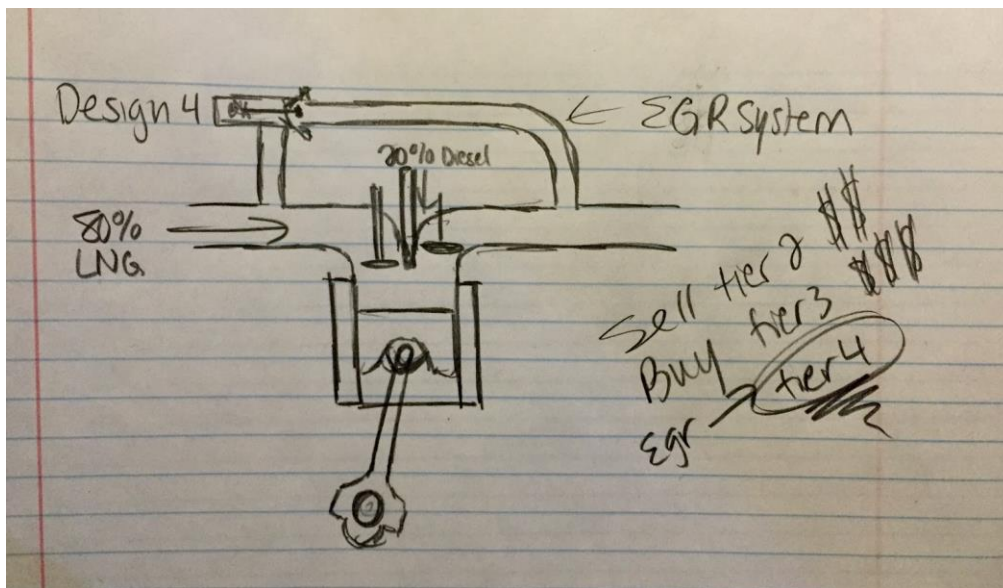 Design 4
EGR System
20% Diesel
80%
LNG
Sell tier 2 $$
Buy tier 3 $$$
Egr tier 4